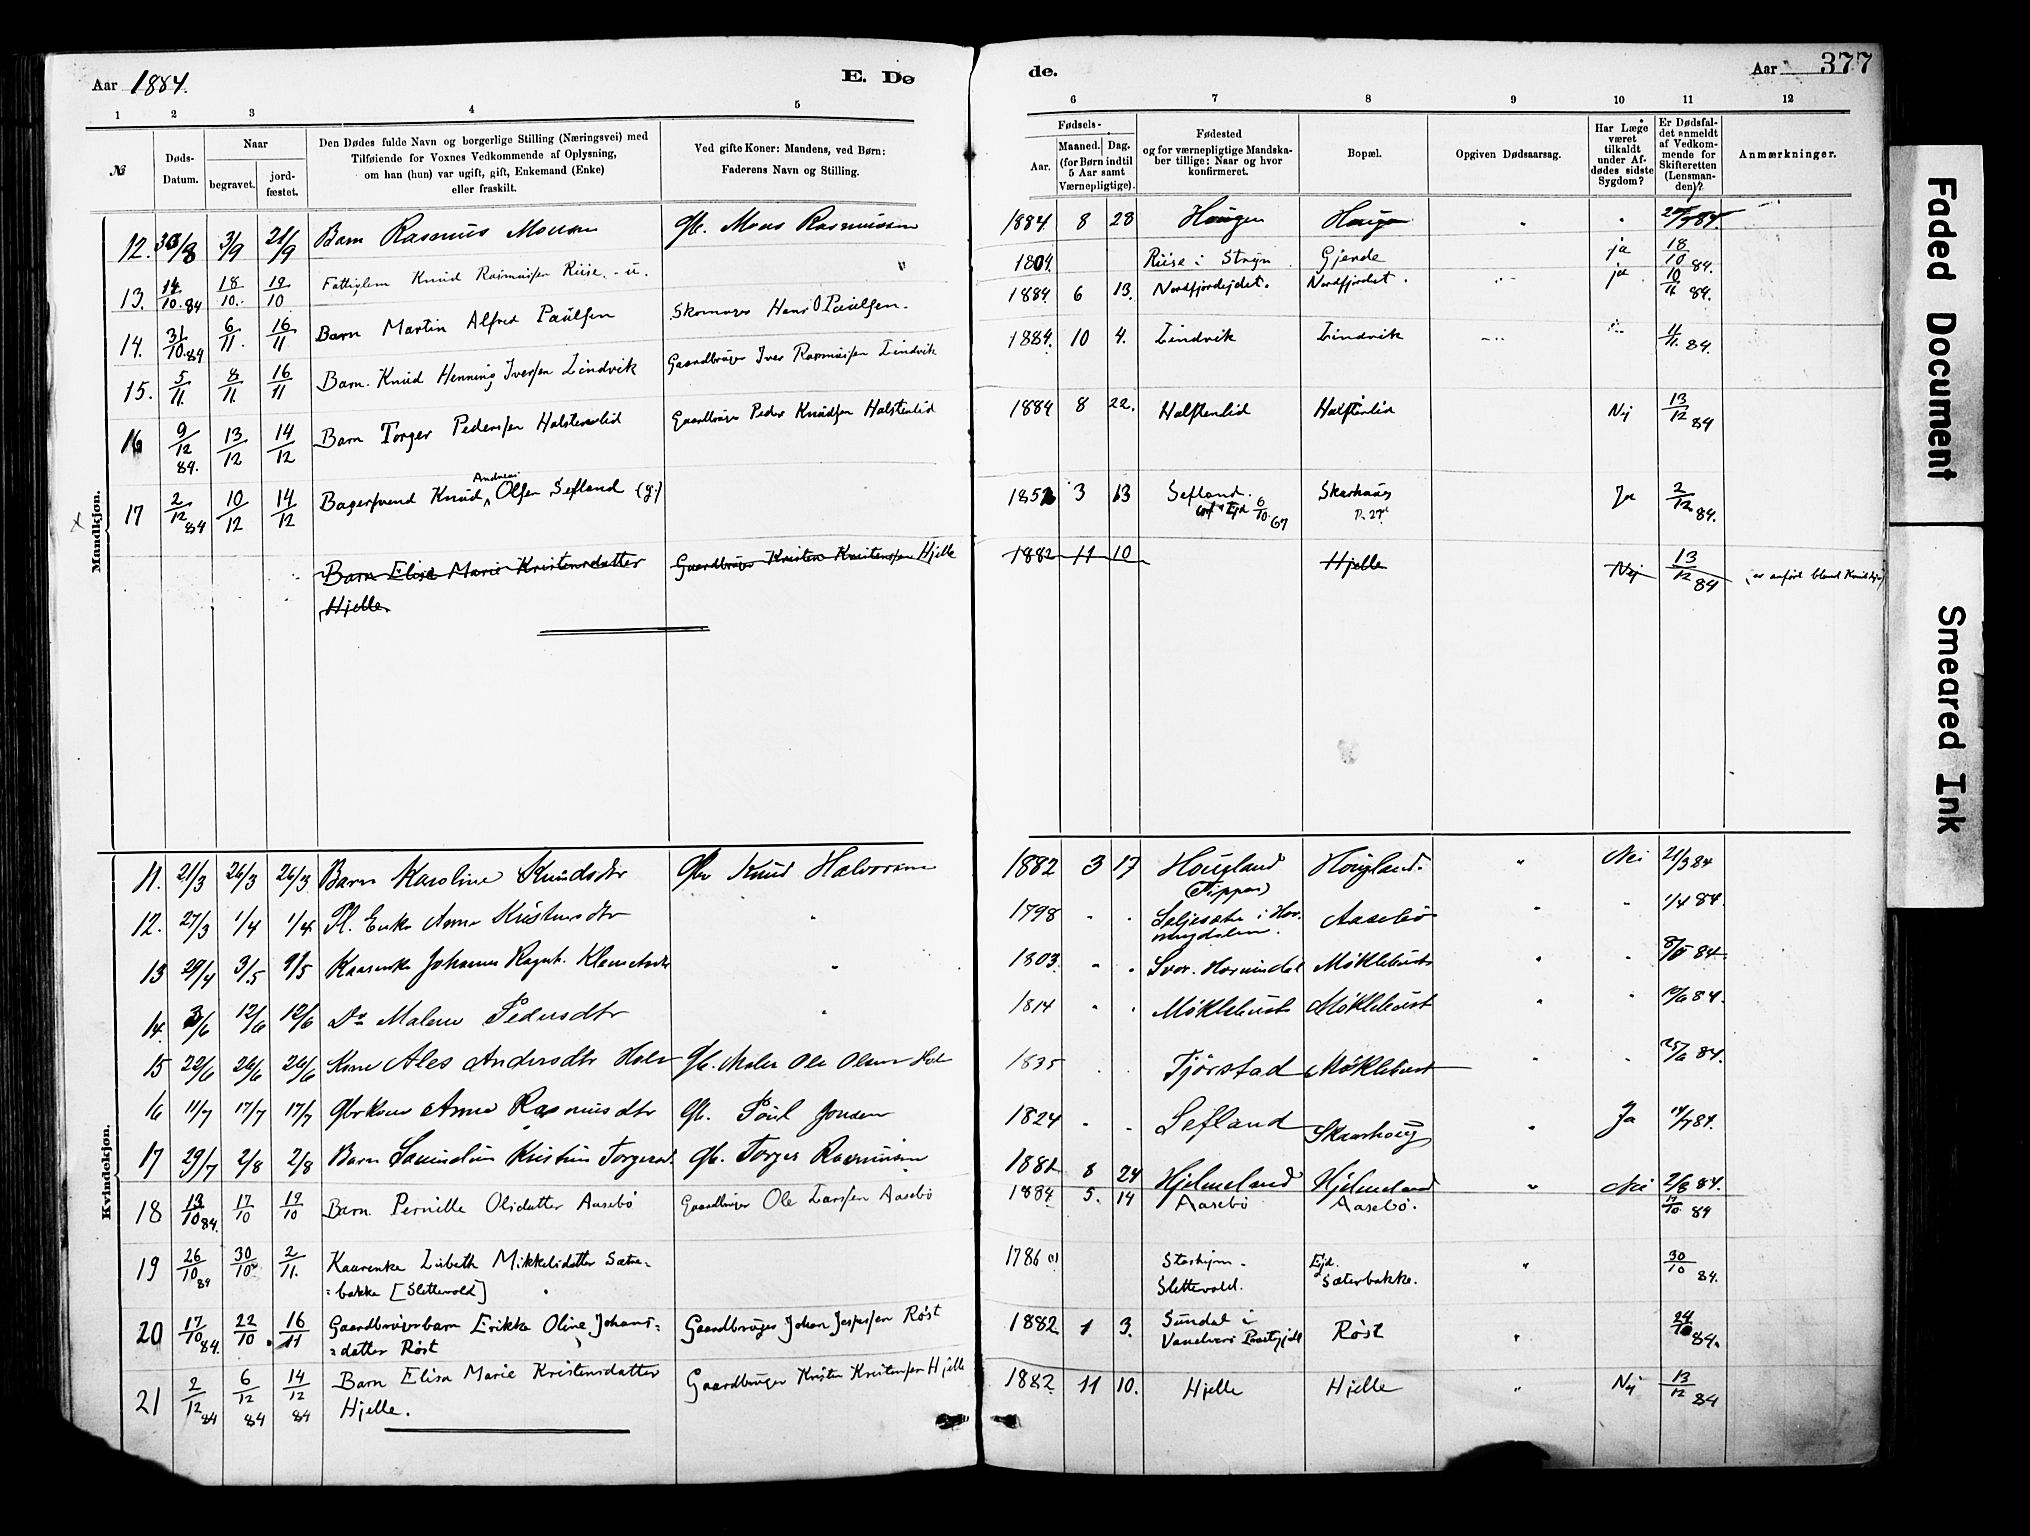 Aar 1884.
E. Dø
de.
Aar 377
1 2 3 4 5 6 7 8 9 10 11 12
№
Døds-Datum.
Naar
begravet.
jord-fæstet.
Den Dødes fulde Navn og borgerlige Stilling (Næringsvei) med
Tilføiende for Voxnes Vedkommende af Oplysning,
om han (hun) var ugift, gift, Enkemand (Enke)
eller fraskilt.
Ved gifte Koner: Mandens, ved Børn:
Faderens Navn og Stilling.
Fødsels-
Aar.
Maaned. Dag.
(for Børn indtil
5 Aar samt
Værnepligtige).
Fødested
og for værnepligtige Mandska-
ber tillige: Naar og hvor
konfirmeret.
Bopæl.
Opgiven Dødsaarsag.
Har Læge
været
tilkaldt
under Af-
dødes sidste
Sygdom?
Er Dødsfal-
det anmeldt
af Vedkom-
mende for
Skifteretten
(Lensman-
den)?
Anmærkninger.
Mandkjøn.
12. 30/8 3/9 21/9 Barn Rasmus Monsen Gb. Mons Rasmussen 1884. 8 28 Haugen Haugen
13. 14/10.84 18/10. 19/10 Fattiglem Knud Rasmussen Riise. - u. " 1804. Riise i Stryn Gjerde ja 18/10 84.
14. 31/10.84 6/11. 16/11 Barn Martin Alfred Paulsen Skomager Hans O Paulsen. 1884 6 13. Nordfjordejdet. Nordfjordet. ja 10/11 84.
15. 5/11. 8/11. 16/11 Barn. Knud Henning Iversen Lindvik Gaardbruger Iver Rasmussen Lindvik 1884. 10 4. Lindvik Lindvik 11/11. 84.
16 9/12 84. 13/12 14/12 Barn Torger Pedersen Halstenslid Gaardbruger Peder Knudsen Halstenlid 1884 8 22. Halstenlid Halstenlid Nej 13/12 84
17 2/12 84 10/12 14/12 Bagersvend Knud Andreas Olsen Sefland (g.) 1852 3 13 Sefland. 6/10.67 Skarhaug Ja 2/12 84.
Barn Elise Marie Kristensdatter Gaardbruger Kristen Kristensen Hjelle 1882 11 10 Hjelle Nej 13/12 84 (er anført bland Kvindkjøn)
Hjelle.
Kvindekjøn.
11. 21/3 26/3 26/3 Barn Karoline Knudsdtr Gbr Knud Halvorsen 1882 3 17 Hougland Hougland. " Nei 21/3 84
12. 27/3 1/4 1/4 Fl. Enke Anne Kristensdtr " 1798 Aasebø 1/4 84.
13 29/4 3/5 9/5 Kaarenke Johanne Ragnh. " 1803. Hornindal Møklebust
14. 3/6 12/6 12/6 Do Malene Pedersdtr " 1814 Møklebust Møklebust 12/6 84.
15 22/6 26/6 26/6 Kone Ales Andersdtr Gb. Ole Olsen 1835 Tjørstad Møklebust 25/6 84.
16 11/7 17/7 17/7 Anne Rasmusdtr Gb. Poul Jonsen 1824 Sefland Skaarhoug Ja
17 29/7 2/8 2/8 Barn Kristine Gb. Torger Rasmussen 1882 8 24 Hjelmeland Hjelmeland " Nei 2/8 84.
18 13/10 84. 17/10 19/10 Barn Pernille Olsdatter Aasebø Gaardbruger Ole Larsen Aasebø 1884 5. 14 Aasebø Aasebø. 17/10 84
19 26/10 84 30/10 2/11. Kaarenke Lisbeth Mikkelsdatter Sætre- 1786 Slettevold. Ejd. Sæterbakke. " 30/10 84.
=bakke [Slettevold]
20 17/10 84. 22/10. 16/11 Gaardbrugerbarn Erikke Oline Johans= Gaardbruger Johan Jespersen Røst 1882 1 3. Sundal i Røst " 24/10 84.
=datter Røst
21 2/12 84 6/12 84 14/12 84 Barn Elisa Marie Kristensdatter Gaardbruger Kristen Kristensen Hjelle 1882 11 10. Hjelle Hjelle " Nej 13/12 84
Hjelle.
Faded Document
Smeared Ink